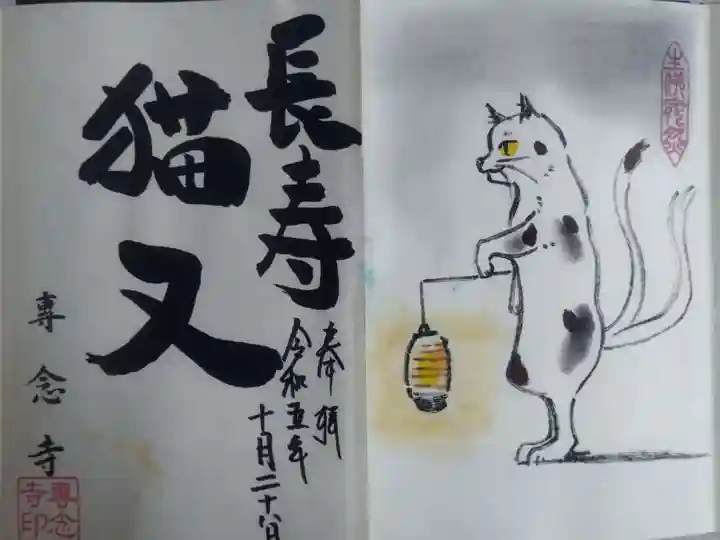 長寿
猫又
奉拝
令和五年
十月二十八日
専念寺
専念寺印